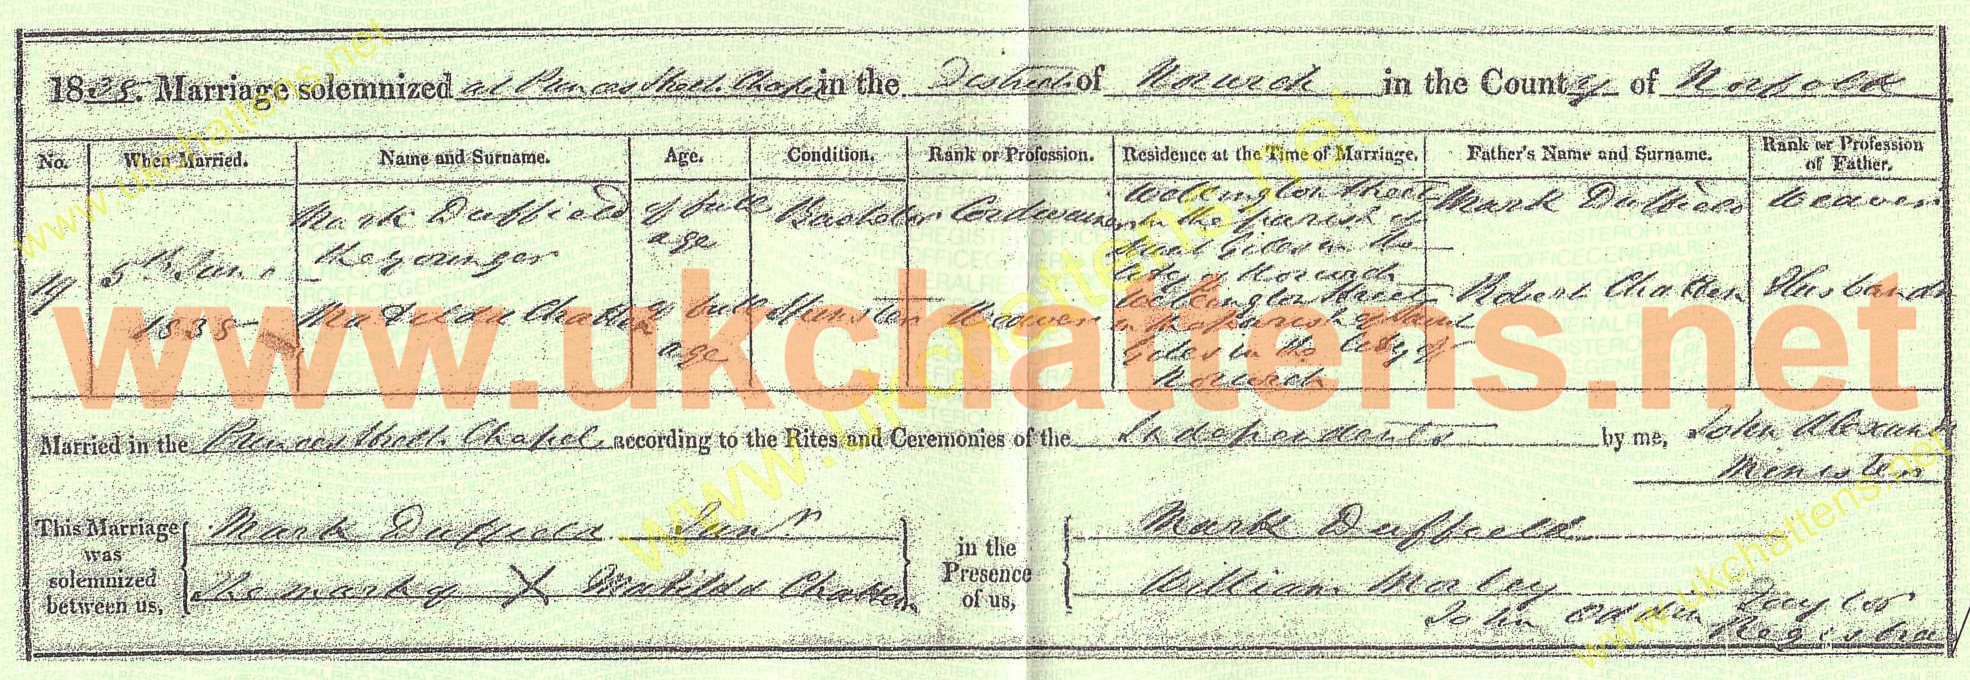 1838. Marriage solemnized at Princes Street Chapel in the District of Norwich in the County of Norfolk
No. When Married. Name and Surname. Age. Condition. Rank or Profession. Residence at the Time of Marriage. Father's Name and Surname. Rank or Profession of Father.
5th June 1838 Mark Duffield the younger of full age Bachelor Cordwainer Wellington Street in the parish of Saint Giles in the City of Norwich Mark Duffield Weaver
Matilda Chatten of full age Spinster Weaver Wellington Street in the Parish of Saint Giles in the City of Norwich Robert Chatten Husband
Married in the Princes Street Chapel according to the Rites and Ceremonies of the Independents by me, John Alexand
Minister
This Marriage was solemnized between us, Mark Duffield Junr
The mark of X Matilda Chatten
in the Presence of us, Mark Duffield
William Mobey
John Oddin Taylor
Registra
www.ukchattens.net
www.ukchattens.net
www.ukchattens.net
www.ukchattens.net